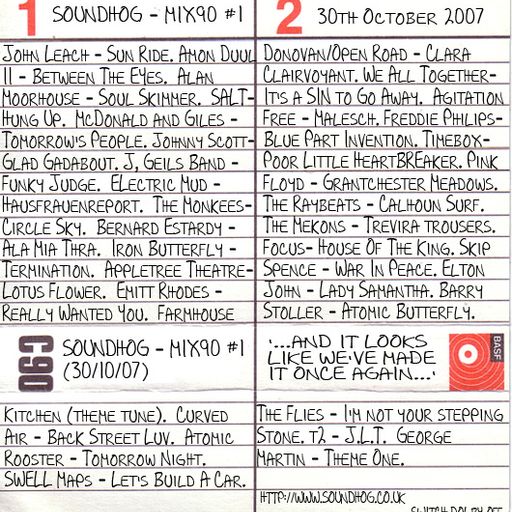 1 SOUNDHOG - MIX90 #1
JOHN LEACH - SUN RIDE. AMON DUUL
II - BETWEEN THE EYES. ALAN
MOORHOUSE - SOUL SKIMMER. SALT-
HUNG UP. MCDONALD AND GILES -
TOMORROW'S PEOPLE. JOHNNY SCOTT-
GLAD GADABOUT. J, GEILS BAND -
FUNKY JUDGE. ELECTRIC MUD -
HAUSFRAUENREPORT. THE MONKEES-
CIRCLE SKY. BERNARD ESTARDY -
ALA MIA THRA. IRON BUTTERFLY -
TERMINATION. APPLETREE THEATRE-
LOTUS FLOWER. EMITT RHODES -
REALLY WANTED YOU. FARMHOUSE
2 30TH OCTOBER 2007
DONOVAN/OPEN ROAD - CLARA
CLAIRVOYANT. WE ALL TOGETHER-
IT'S A SIN TO GO AWAY. AGITATION
FREE - MALESCH. FREDDIE PHILIPS-
BLUE PART INVENTION. TIMEBOX-
POOR LITTLE HEARTBREAKER. PINK
FLOYD - GRANTCHESTER MEADOWS.
THE RAYBEATS - CALHOUN SURF.
THE MEKONS - TREVIRA TROUSERS.
FOCUS- HOUSE OF THE KING. SKIP
SPENCE - WAR IN PEACE. ELTON
JOHN - LADY SAMANTHA. BARRY
STOLLER - ATOMIC BUTTERFLY.
C90
SOUNDHOG - MIX90 #1
(30/10/07)
'...AND IT LOOKS
LIKE WE'VE MADE
IT ONCE AGAIN...'
BASF
KITCHEN (THEME TUNE). CURVED
AIR - BACK STREET LUV. ATOMIC
ROOSTER - TOMORROW NIGHT.
SWELL MAPS - LET'S BUILD A CAR.
THE FLIES - I'M NOT YOUR STEPPING
STONE. T2 - J.L.T. GEORGE
MARTIN - THEME ONE.
HTTP://WWW.SOUNDHOG.CO.UK
SWITCH DOLBY OFF